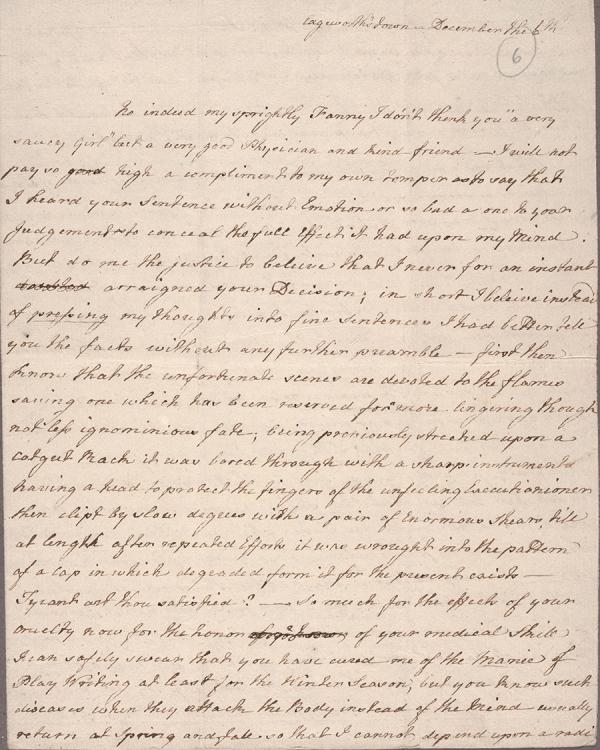 Edgeworthstown – December the 6th
6
No indeed my sprightly Fanny I don't think you "a very
saucy Girl but a very good Physician and kind friend – I will not
pay so good high a compliment to my own temper as to say that
I heard your Sentence without Emotion or so bad a one to your
Judgement to conceal the full effect it had upon my Mind.
But do me the justice to beleive that I never for an instant
doubted arraigned your Decision; in short I beleive instead
of pressing my thoughts into fine Sentences I had better tell
you the facts without any further preamble – first then
know that the unfortunate scenes are devoted to the flames
saving one which has been reserved for a more lingering though
not less ignominious fate; being previously streched upon a
catgut Rack it was bored through with a sharp instrument
having a head to protect the fingers of the unfeeling Executioner
then clipt by slow degrees with a pair of Enormous Shears, till
at length after repeated Efforts it was wrought into the pattern
of a cap in which degraded form it for the present exists –
Tyrant art thou satisfied? – So much for the effects of your
cruelty now for the honor of your medical Skill
I can safely swear that you have cured me of the Manie of
Play Writing at least for the Winter Season; but you know such
diseases when they attack the Body instead of the Mind usually
return at Spring and fall so that I cannot depend upon a radi